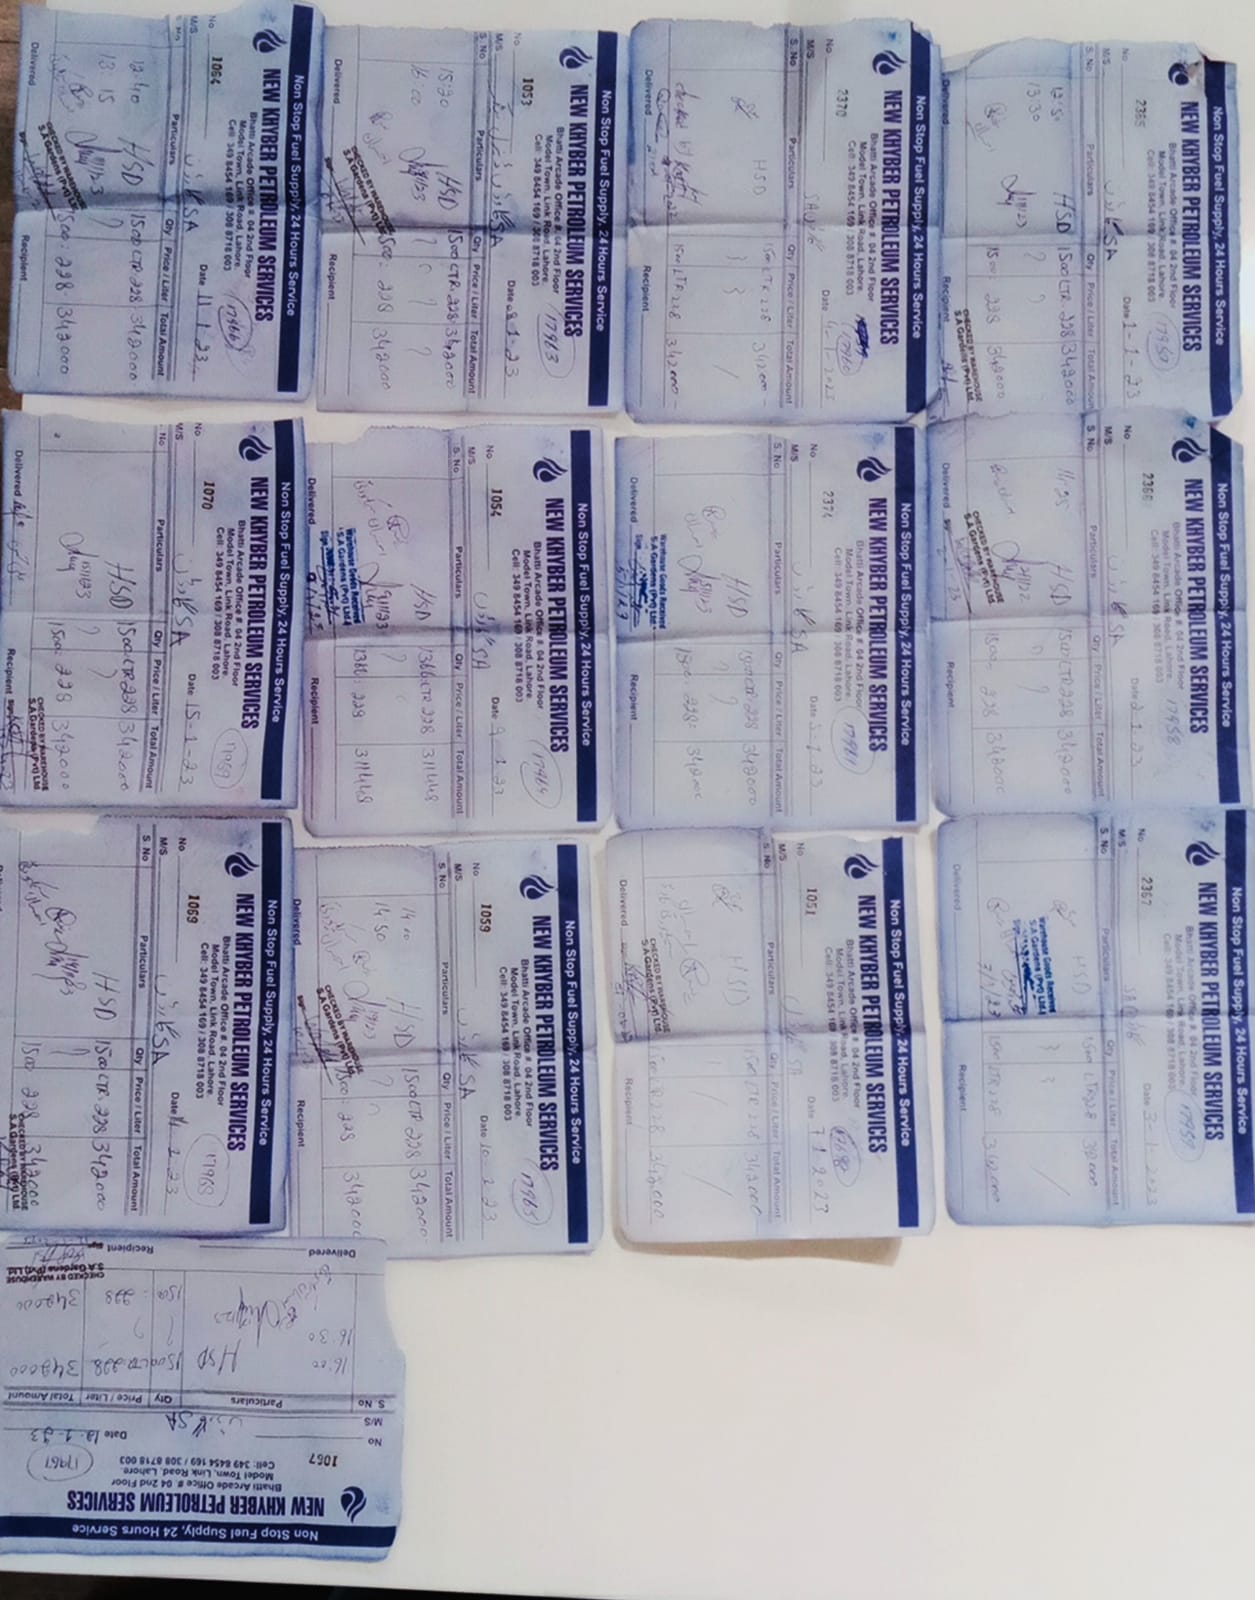 Non Stop Fuel Supply, 24 Hours Service
NEW KHYBER PETROLEUM SERVICES
Bhatti Arcade Office #. 04 2nd Floor
Model Town, Link Road, Lahore.
Cell: 349 8454 169 / 308 8718 003
No 1064 Date 11-1-23
M/S SA
S. No Particulars Qty Price / Liter Total Amount
12:40 HSD 1500 LTR 228 342000
13:15
1500 228 342000
CHECKED BY WAREHOUSE
S.A Gardens (Pvt) Ltd.
Delivered Recipient
Non Stop Fuel Supply, 24 Hours Service
NEW KHYBER PETROLEUM SERVICES
Bhatti Arcade Office #. 04 2nd Floor
Model Town, Link Road, Lahore.
Cell: 349 8454 169 / 308 8718 003
17963
No. 1053 Date 8-1-23
M/S SA
S. No Particulars Qty Price / Liter Total Amount
15:20 HSD 1500 LTR 228 342000
16:00
1500 228 342000
CHECKED BY WAREHOUSE
S.A Gardens (Pvt) Ltd.
Delivered Recipient
Non Stop Fuel Supply, 24 Hours Service
NEW KHYBER PETROLEUM SERVICES
Bhatti Arcade Office #. 04 2nd Floor
Model Town, Link Road, Lahore.
Cell: 349 8454 169 / 308 8718 003
17960
No 2370 Date 4-1-2023
M/S
S. No Particulars Qty Price / Liter Total Amount
HSD 1500 LTR 228 342000
1500 LTR 228 342000
Delivered Recipient
Non Stop Fuel Supply, 24 Hours Service
NEW KHYBER PETROLEUM SERVICES
Bhatti Arcade Office #. 04 2nd Floor
Model Town, Link Road, Lahore.
Cell: 349 8454 169 / 308 8718 003
No 2365 Date 1-1-23
M/S SA
S. No Particulars Qty Price / Liter Total Amount
12:50 HSD 1500 LTR 228 342000
13:30
1500 228 342000
CHECKED BY WAREHOUSE
S.A Gardens (Pvt) Ltd.
Delivered Recipient
Non Stop Fuel Supply, 24 Hours Service
NEW KHYBER PETROLEUM SERVICES
Bhatti Arcade Office #. 04 2nd Floor
Model Town, Link Road, Lahore.
Cell: 349 8454 169 / 308 8718 003
17969
No 1070 Date 15-1-23
M/S SA
S. No Particulars Qty Price / Liter Total Amount
HSD 1500 LTR 228 342000
1500 228 342000
CHECKED BY WAREHOUSE
S.A Gardens (Pvt) Ltd.
Delivered Recipient
Non Stop Fuel Supply, 24 Hours Service
NEW KHYBER PETROLEUM SERVICES
Bhatti Arcade Office #. 04 2nd Floor
Model Town, Link Road, Lahore.
Cell: 349 8454 169 / 308 8718 003
17964
No 1054 Date 9-1-23
M/S SA
S. No Particulars Qty Price / Liter Total Amount
HSD 1366 LTR 228 311448
1366 228 311448
Warehouse Goods Received
S.A Gardens (Pvt) Ltd
Delivered Recipient
Non Stop Fuel Supply, 24 Hours Service
NEW KHYBER PETROLEUM SERVICES
Bhatti Arcade Office #. 04 2nd Floor
Model Town, Link Road, Lahore.
Cell: 349 8454 169 / 308 8718 003
17961
No 2374 Date 5-1-23
M/S SA
S. No Particulars Qty Price / Liter Total Amount
HSD 1500 LTR 228 342000
1500 228 342000
Warehouse Goods Received
S.A Gardens (Pvt) Ltd
Delivered Recipient
Non Stop Fuel Supply, 24 Hours Service
NEW KHYBER PETROLEUM SERVICES
Bhatti Arcade Office #. 04 2nd Floor
Model Town, Link Road, Lahore.
Cell: 349 8454 169 / 308 8718 003
17958
No 2366 Date 2-1-23
M/S SA
S. No Particulars Qty Price / Liter Total Amount
11:25 HSD 1500 LTR 228 342000
1500 228 342000
CHECKED BY WAREHOUSE
S.A Gardens (Pvt) Ltd.
Delivered Recipient
Non Stop Fuel Supply, 24 Hours Service
NEW KHYBER PETROLEUM SERVICES
Bhatti Arcade Office #. 04 2nd Floor
Model Town, Link Road, Lahore.
Cell: 349 8454 169 / 308 8718 003
17968
No 1069 Date 1-23
M/S SA
S. No Particulars Qty Price / Liter Total Amount
HSD 1500 LTR 228 342000
1500 228 342000
CHECKED BY WAREHOUSE
S.A Gardens (Pvt) Ltd.
Non Stop Fuel Supply, 24 Hours Service
NEW KHYBER PETROLEUM SERVICES
Bhatti Arcade Office #. 04 2nd Floor
Model Town, Link Road, Lahore.
Cell: 349 8454 169 / 308 8718 003
17965
No 1059 Date 10-1-23
M/S SA
S. No Particulars Qty Price / Liter Total Amount
14:10 HSD 1500 LTR 228 342000
14:50
1500 228 342000
CHECKED BY WAREHOUSE
S.A Gardens (Pvt) Ltd.
Delivered Recipient
Non Stop Fuel Supply, 24 Hours Service
NEW KHYBER PETROLEUM SERVICES
Bhatti Arcade Office #. 04 2nd Floor
Model Town, Link Road, Lahore.
Cell: 349 8454 169 / 308 8718 003
No 1051 Date 7-1-2023
M/S
S. No Particulars Qty Price / Liter Total Amount
HSD 1500 LTR 228 342000
342000
CHECKED BY WAREHOUSE
S.A Gardens (Pvt) Ltd.
Delivered Recipient
Non Stop Fuel Supply, 24 Hours Service
NEW KHYBER PETROLEUM SERVICES
Bhatti Arcade Office #. 04 2nd Floor
Model Town, Link Road, Lahore.
Cell: 349 8454 169 / 308 8718 003
17959
No 2367 Date 3-1-2023
M/S
S. No Particulars Qty Price / Liter Total Amount
HSD 1500 LTR 228 342000
1500 LTR 228 342000
Warehouse Goods Received
S.A Gardens (Pvt) Ltd
Delivered Recipient
Non Stop Fuel Supply, 24 Hours Service
NEW KHYBER PETROLEUM SERVICES
Bhatti Arcade Office #. 04 2nd Floor
Model Town, Link Road, Lahore.
Cell: 349 8454 169 / 308 8718 003
17967
No 1067 Date 12-1-23
M/S SA
S. No Particulars Qty Price / Liter Total Amount
16:00 HSD 1500 LTR 228 342000
16:30
1500 228 342000
CHECKED BY WAREHOUSE
S.A Gardens (Pvt) Ltd.
Delivered Recipient